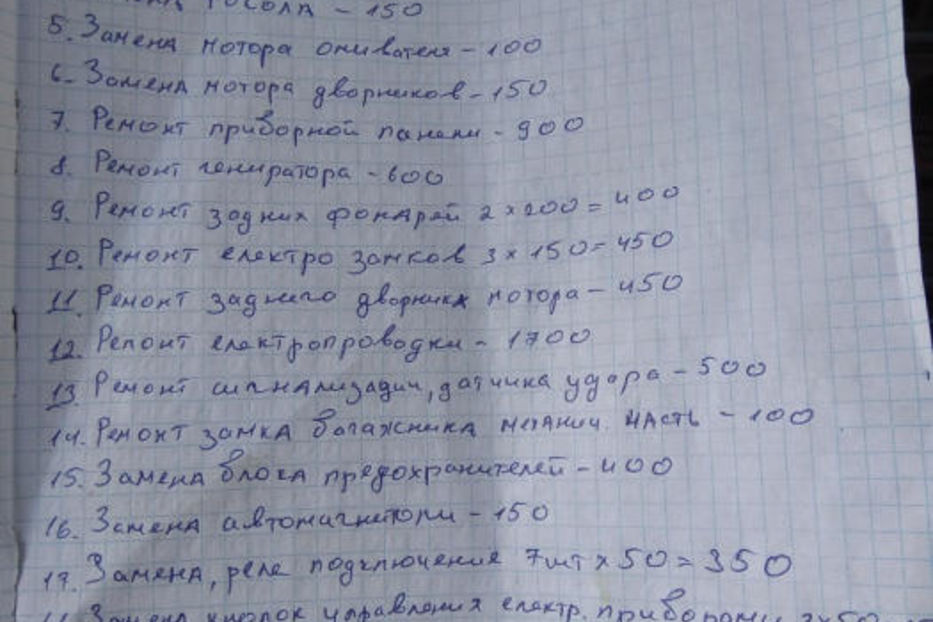 тосола - 150
5. Замена мотора омивателя - 100
6. Замена мотора дворников - 150
7. Ремонт приборной панели - 900
8. Ремонт гениратора - 600
9. Ремонт задних фонарей 2 x 200 = 400
10. Ремонт електро замков 3 x 150 = 450
11. Ремонт заднего дворника мотора - 450
12. Ремонт електропроводки - 1700
13. Ремонт сигнализации, датчика удара - 500
14. Ремонт замка багажника механич. часть - 100
15. Замена блока предохранителей - 400
16. Замена автомагнитоли - 150
17. Замена, реле подключения 7шт x 50 = 350
Замена кнопок управления електр. приборами